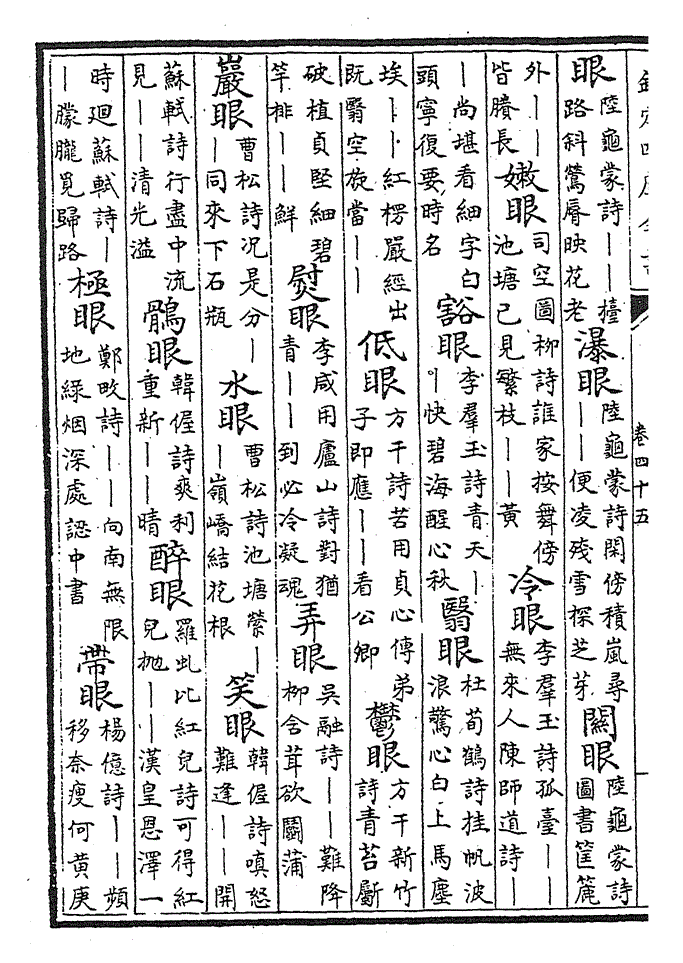 欽定四庫全書
卷四十五
眼陸龜蒙詩——檯路斜鶯脣映花老瀑眼陸龜蒙詩閑傍積嵐尋——便凌殘雪探芝芽關眼陸龜蒙詩圖書筐簏
外——皆賸長嫩眼司空圖柳詩誰家按舞傍池塘已見繁枝——黃冷眼李羣玉詩孤臺——無來人陳師道詩—
—尚堪看細字白頭寧復要時名豁眼李羣玉詩青天——快碧海醒心秋翳眼杜荀鶴詩挂帆波浪驚心白上馬塵
埃——紅楞嚴經出既翳空旋當——低眼方干詩苦用貞心傳弟子即應——看公卿鬱眼方干新竹詩青苔斸
破植貞堅細碧竿排——鮮熨眼李咸用廬山詩對猶青——到必冷凝魂弄眼吳融詩——難降柳含茸欲鬬蒲
巖眼曹松詩况是分——同來下石瓶水眼曹松詩池塘縈——嶺嶠結花根笑眼韓偓詩嗔怒難逢——開
蘇軾詩行盡中流見——清光溢鶻眼韓偓詩爽利重新——晴醉眼羅虬比紅兒詩可得紅兒抛——漢皇恩澤一
時廻蘇軾詩——朦朧覓歸路極眼鄭畋詩——向南無限地綠烟深處認中書帶眼楊億詩——頻移奈瘦何黃庚